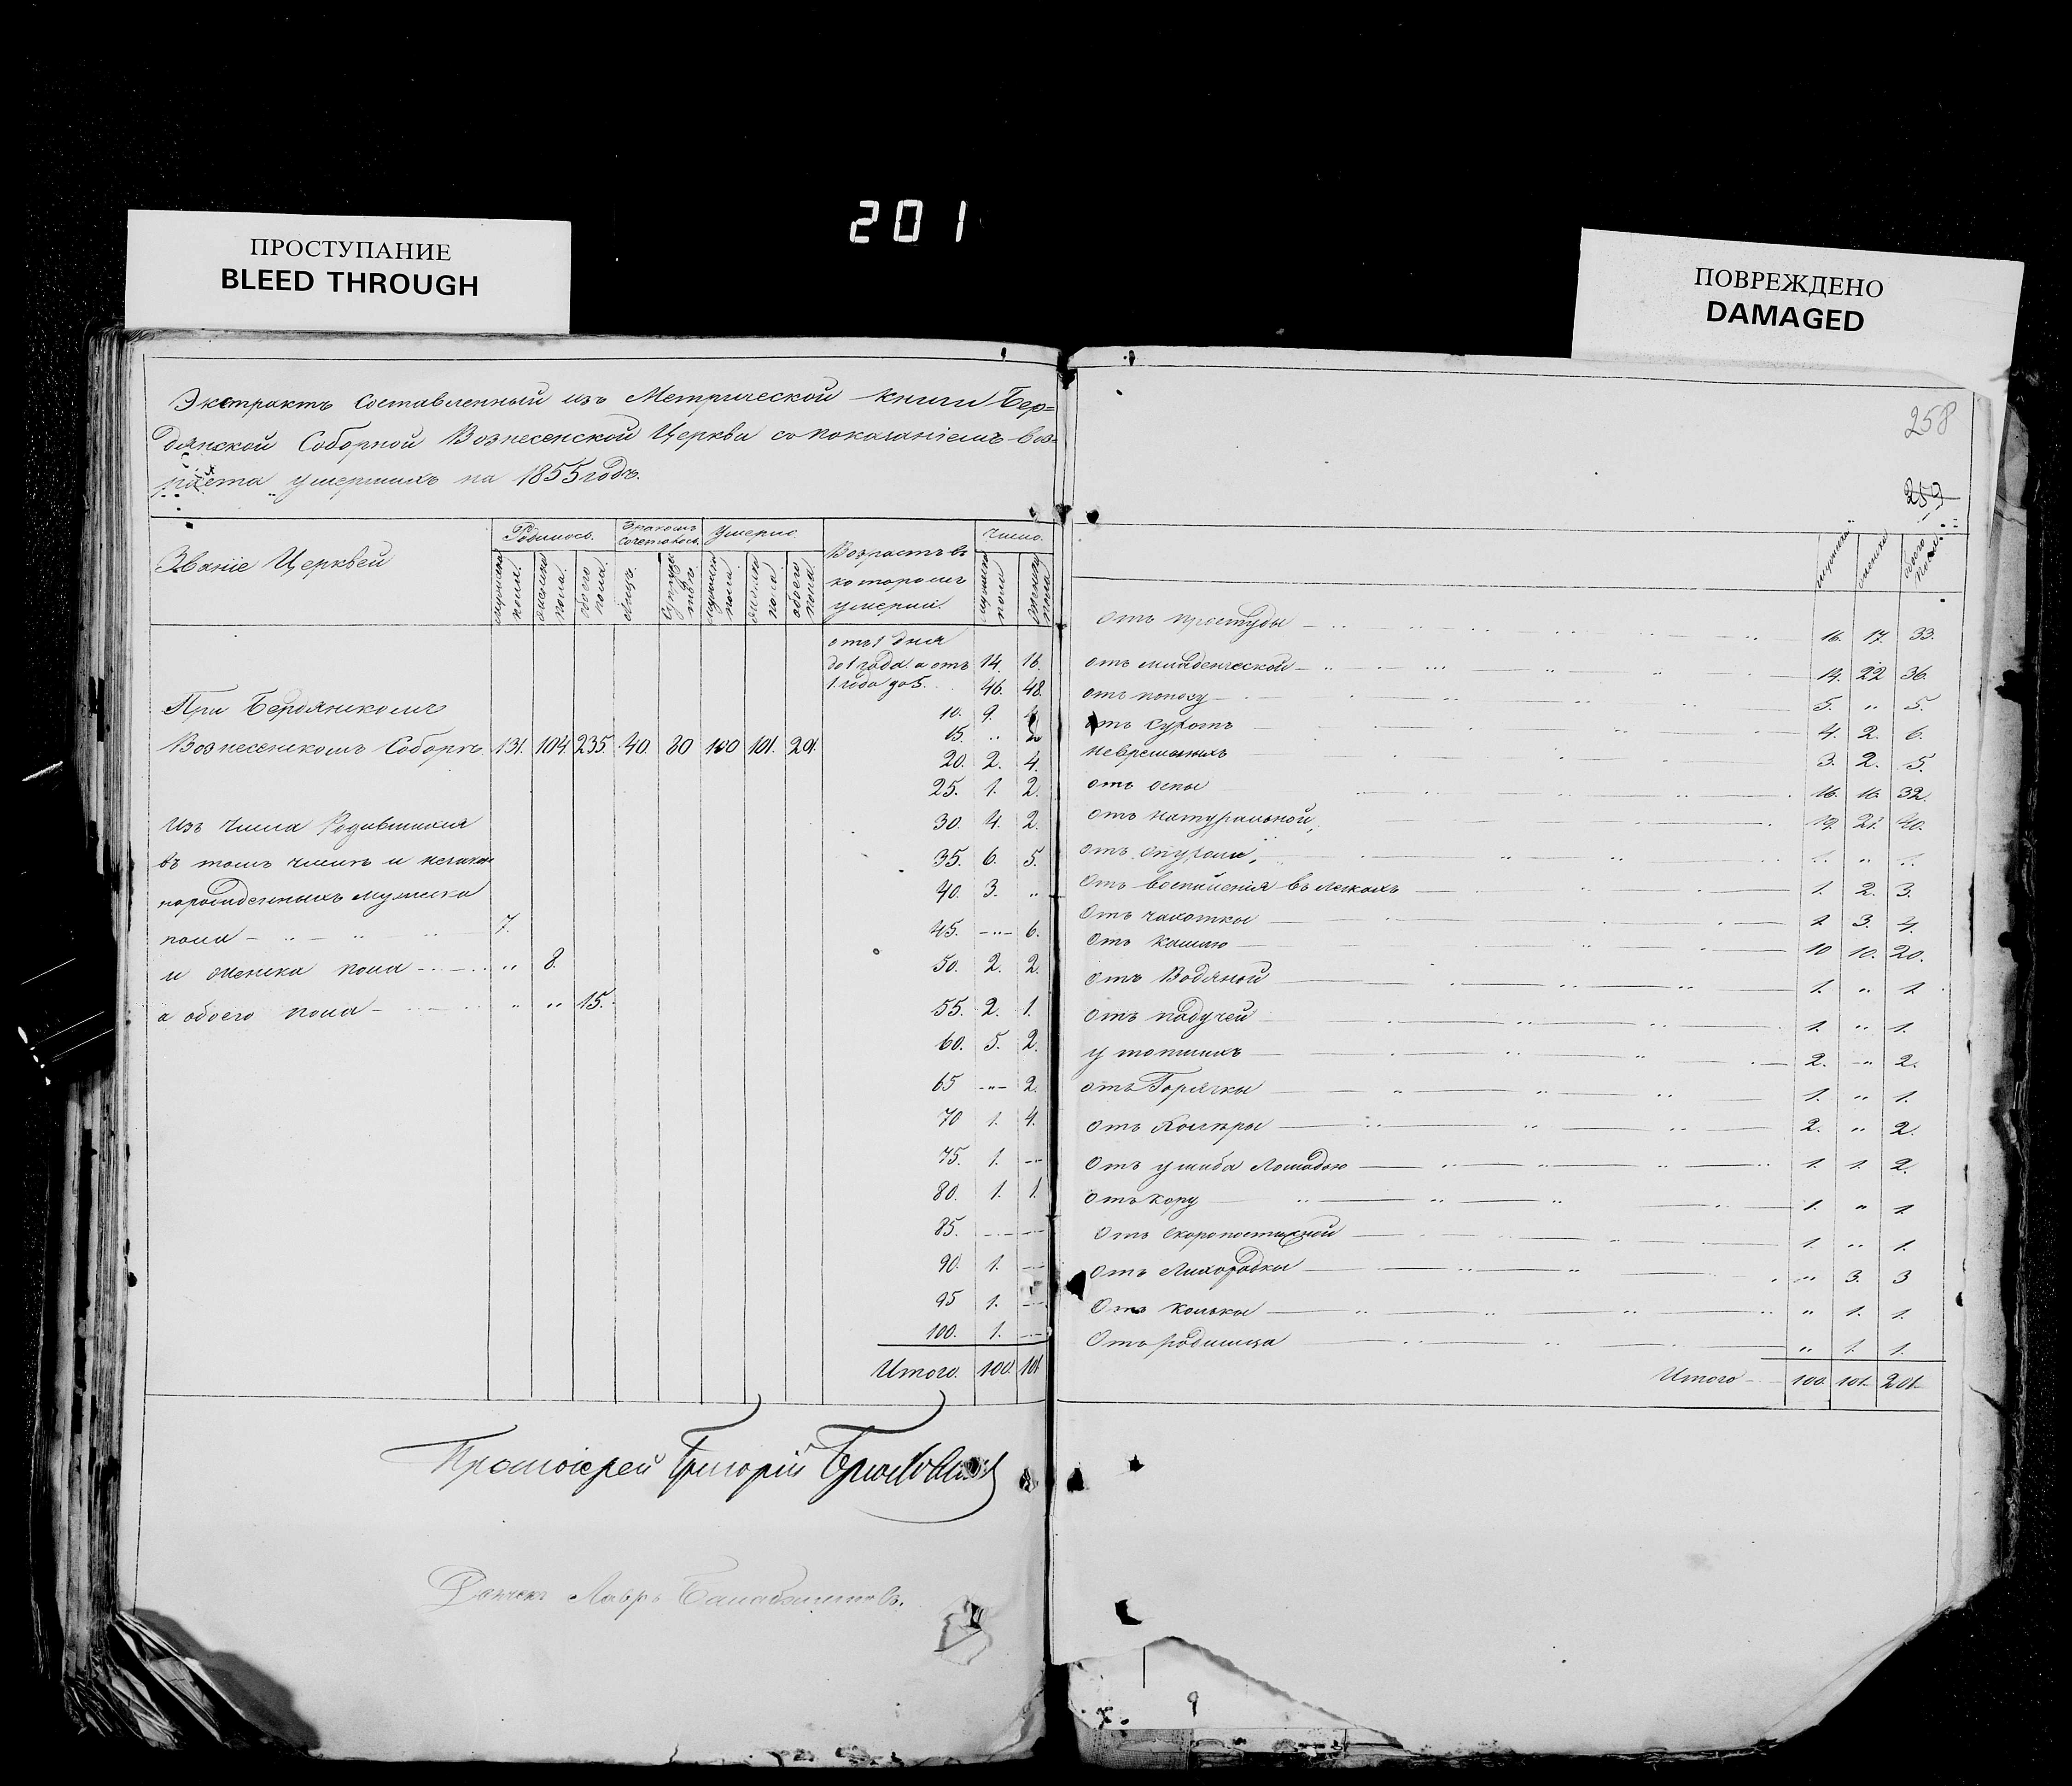 201
ПРОСТУПАНИЕ
BLEED THROUGH
ПОВРЕЖДЕНО
DAMAGED
Экстрактъ Составленный изъ Метрической книги Бер=
дянской Соборной Вознесенской Церкви со показаніемъ воз=
раста умершихъ на 1855 годъ.
Званіе Церквей
Родилось.
Бракомъ Сочеталось.
Умерло.
Возрастъ въ
которомъ
умерли.
Число.
мужеска пола. женска пола. обоего пола.
лицъ. супружествъ
мужеска пола женска пола обоего пола
мужеска пола женска пола
При Бердянскомъ
Вознесенскомъ Соборѣ 131. 104. 235. 40. 80 100 101. 201.
Изъ числа Родившихся
въ томъ числѣ и незаконно
порожденныхъ мужеска
пола 7.
и женска пола „ 8.
а обоего пола „ „ 15.
отъ 1 дня
до 1 года а отъ 14. 16.
1. года до 5. 46. 48.
10. 9.
15. „
20. 2. 4.
25. 1. 2.
30. 4. 2.
35. 6. 5.
40. 3. „
45. „ 6.
50. 2. 2.
55. 2. 1.
60. 5. 2.
65 „ 2.
70 1. 4.
75. 1. „
80. 1. 1.
85. „ „
90. 1. „
95 1. „
100. 1. „
Итого. 100. 101
Протоіерей Григорій
Дьячекъ Лавръ
258
259
мужеска женска обоего пола.
отъ простуды 16. 17. 33.
отъ младенческой 14. 22 36.
отъ поносу 5. „ 5.
отъ сухотъ 4. 2. 6.
невременныхъ 3. 2. 5.
отъ оспы 16. 16. 32.
отъ натуральной, 19. 21. 40.
отъ опухоли, 1. „ 1.
Отъ воспаленія въ легкихъ 1. 2. 3.
Отъ чахотки 1 3. 4.
Отъ кашлю 10 10. 20.
Отъ Водяной 1. „ 1.
Отъ падучей 1. „ 1.
утопшихъ 2. „ 2.
отъ Горячки 1. „ 1.
отъ Холѣры 2. „ 2.
Отъ ушиба Лошадью 1. 1. 2.
отъ кору 1. „ 1.
Отъ Скоропостижной 1. „ 1.
Отъ Лихорадки „ 3. 3
Отъ Кольки „ 1. 1.
Отъ родимца „ 1. 1.
Итого 100. 101. 201.
9